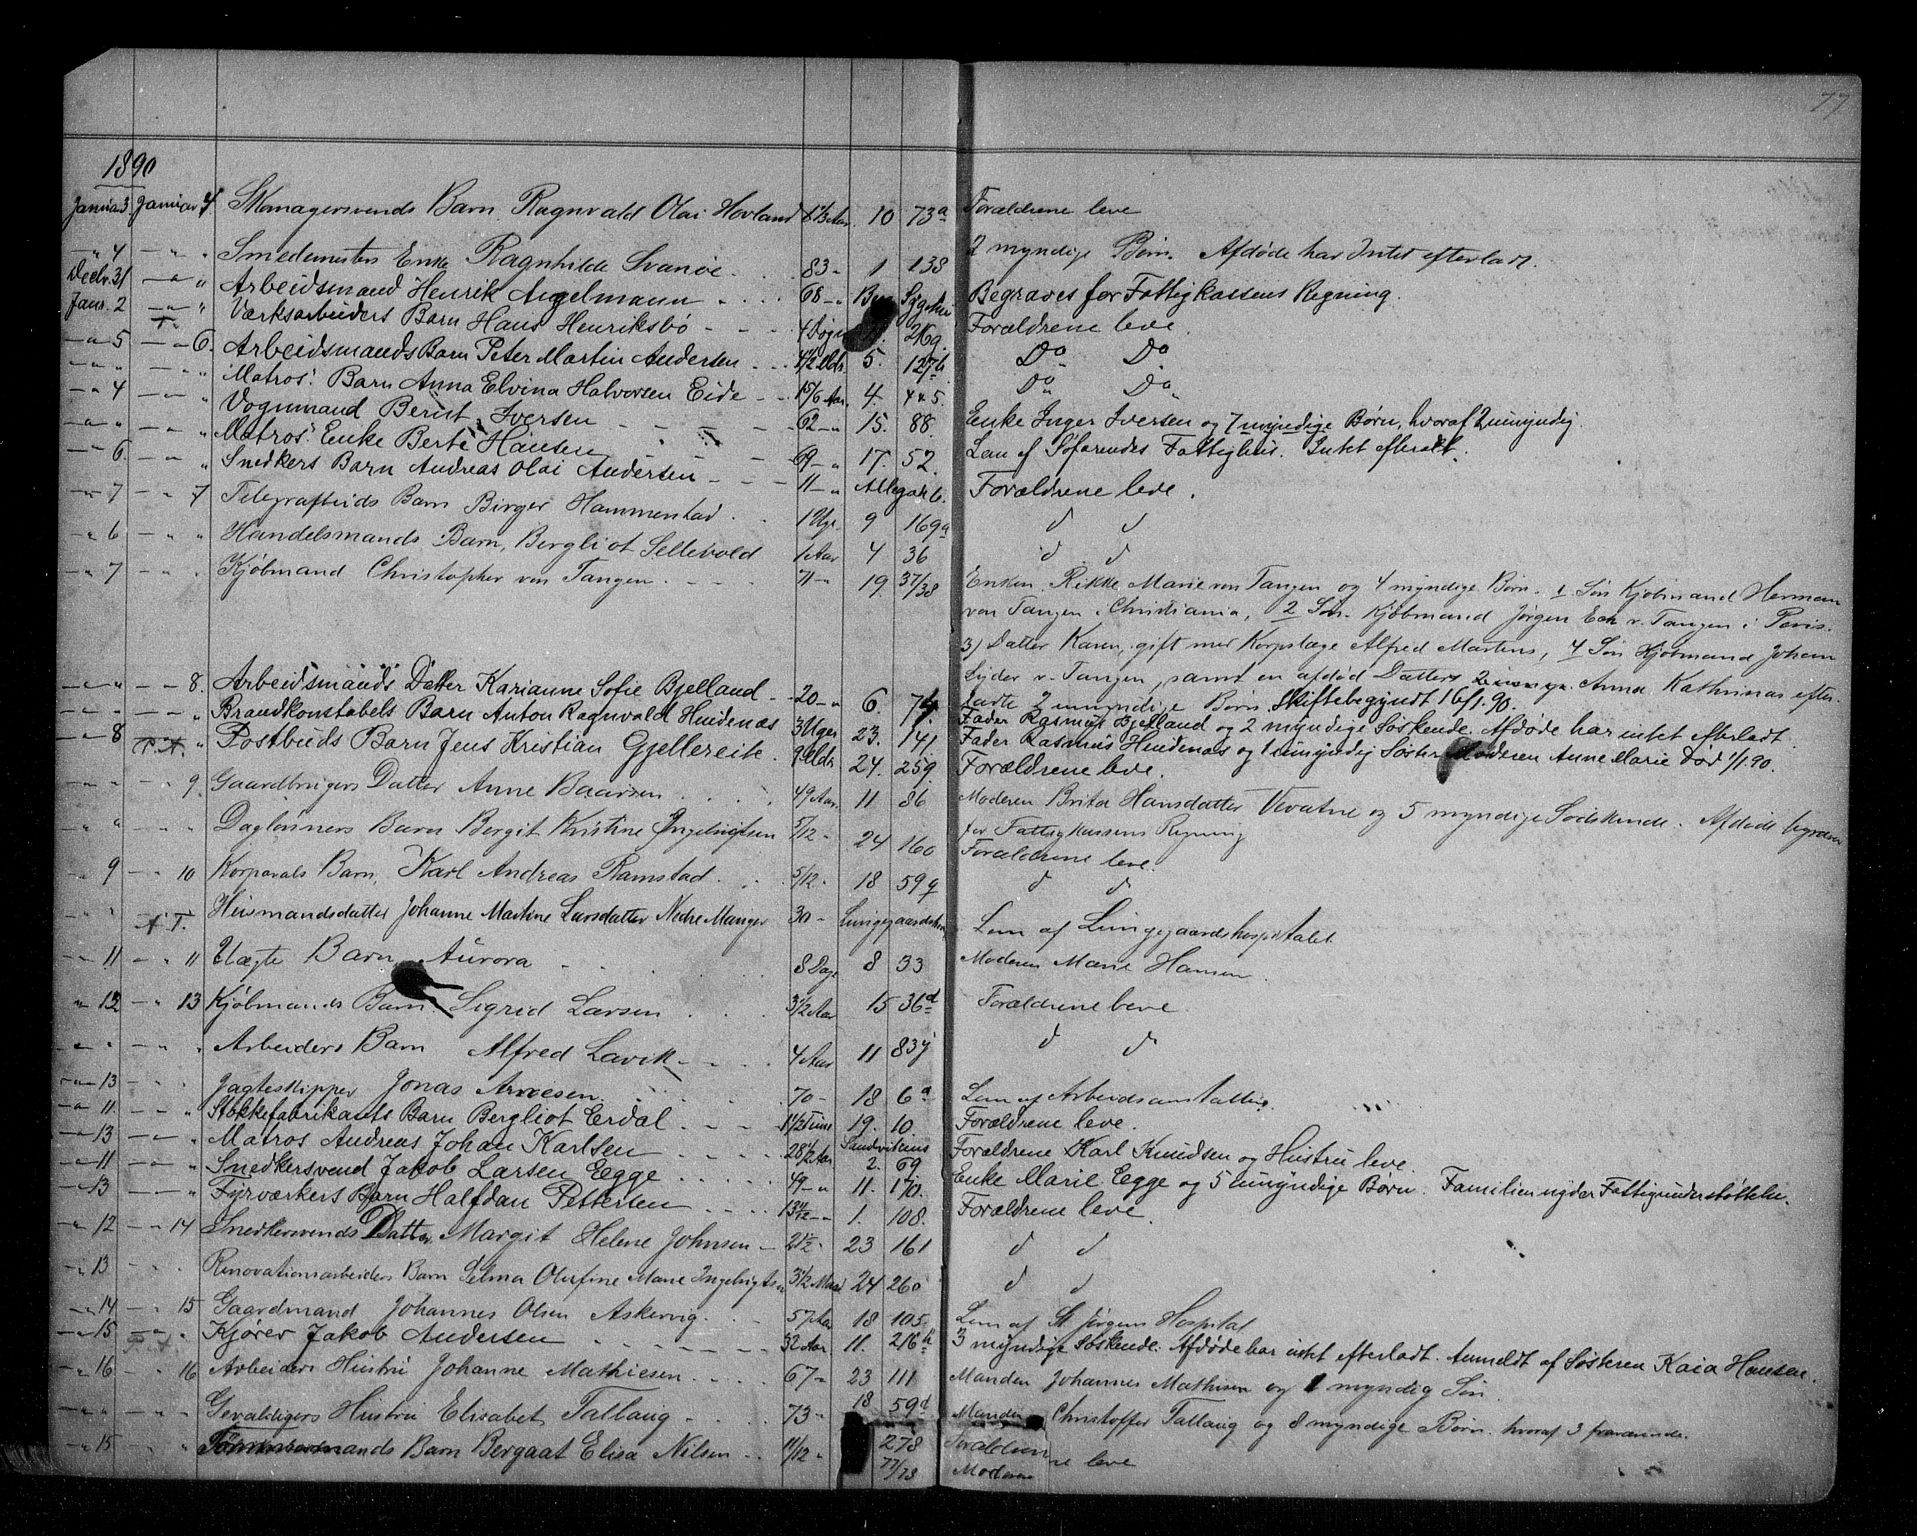 77
1890
Januar 3 Januar 4 Skomagersvends Barn Ragnvald Olai Hovland 6 1/3 Aar 10 73a Forældrene leve
-"- 4 - " " Smedemesters Enke Ragnhilde Svanöe 83 - 1 138 2 myndige Börn. Afdöde har Intet efterladt.
Decbr. 31 - " " Arbeidsmand Henrik Angelmann 68 - " Byens Sygehus Begraves for Fattigkassens Regning.
Janr. 2 - " " Værksarbeiders Barn Hans Henriksbø 4 Døgn 269. Forældrene leve.
- " 5 - " 6. Arbeidsmands Barn Peter Martin Andersen 4 1/2 Mdr. 5. 127b. Do Do
- " " - " " Matros' Barn Anna Elvina Halvorsen Eide 1 5/6 Aar. 4. 445. Do Do
- " 4 - " " Vognmand Berent Iversen 62 - " 15. 88. Enke Inger Iversen og 7 myndige Børn, hvoraf 2 umyndig.
- " " - " " Matros' Enke Berte Hansen 69 - " 17. 52. Lem af Søfarendes Fattighus. Intet efterladt.
- " 6 " Snedkers Barn Andreas Olai Andersen 11 - " Allegt 6. Forældrene leve.
- " 7 - " 7 Telegrafbuds Barn Birger Hammerstad 1 Uge 9 169a d d
- " 6 - " " Handelsmands Barn, Bergliot Sellevold 1 Aar 4 36 d d
- " 7 - " " Kjöbmand Christopher von Tangen 71 - " 19. 37/38 Enken Rikke Marie von Tangen og 4 myndige Börn. 1 Sön Kjöbmand Herman
von Tangen i Christiania, 2 Sön Kjöbmand Jörgen Eeh v. Tangen i Paris.
3) Datter Karen, gift med Korpslæge Alfred Martens, 4 Sön Kjöbmand Johan
Lyder v. Tangen, samt en afdöd Datters Anna Kathrinas efter-
ladte 2 umyndige Börn. Skiftebegyndt 16/1. 90.
- " " - " 8. Arbeidsmands Datter Karianne Sofie Bjelland 20 - " 6. 74. Fader Rasmus Bjelland og 2 myndige Søskende. Afdøde har intet efterladt.
- " " - " " Brandkonstabels Barn Anton Ragnvald Hundenæs 3 Uger 23. 141. Fader Rasmus Hundenæs og 1 umyndig Søster. Moderen Anne Marie død 1/1. 90.
- " 8 " Postbuds Barn Jens Kristian Gjellereite 9 Mdr. 24. 259 Forældrene leve.
- " " 9. Gaardbrugers Datter Anne Baarsen 49 Aar. 11 86 Moderen Brita Hansdatter Vevatne og 5 myndige Södskende. Afdöde begraves
for Fattigkassens Regning
" " - " " Daglönners Barn Bergit Kristine Ingebrigtsen 5/12 - 24 160 Forældrene leve.
- " 9 - " 10 Korporals Barn, Karl Andreas Ramstad 5/12 - 18 59q d d
A.T. Husmandsdatter Johanne Martine Larsdatter Nedre Manger 30 - Lungegaardshosp Lem af Lungegaardshospitalet
- " 11 - " 11 Uægte Barn Aurora 8 Dage 8 33 Moderen Marie Hansen
- " 12 - " 13 Kjöbmands Barn Sigrid Larsen 3 1/2 Aar 15 36d Forældrene leve
- " " - " " Arbeiders Barn Alfred Lavik 4 Aar 11 83y d d
- " 13 - " " Jagteskipper Jonas Arnesen 70 - 18 6a Lem af Arbeidsanstalten.
- " 11 - " " Stokkefabrikants Barn Bergliot Erdal 1 1/2 Time 19. 10 Forældrene leve.
- " 13 - " " Matros Andreas Johan Karlsen 28 1/2 Aar Sandvikens 2. 69 Forældrene Karl Knudsen og Hustru leve.
- " 11 - " " Snedkersvend Jakob Larsen Egge 49 - " 11. 170. Enke Marie Egge og 5 umyndige Børn. Familien nyder Fattigunderstøttelse.
- " 13 - " " Fyrværkers Barn Halfdan Pettersen 1. 108. Forældrene leve.
- " 12 - " 14 Snedkersvends Datter Margit Helene Johnsen 2 1/2 - 23 161 d d
- " 13 - " " Renovationsarbeiders Barn Selma Olufine Marie Ingebrigtsen 3 1/2 Maaned 24 260 d d
- " 14 - " 15 Gaardmand Johannes Olsen Askevig 57 Aar 18 105 Lem af St Jörgens Hospital
- " 15 Kjører Jakob Andersen 32 Aar. 11. 216h 3 myndige Søskende. Afdøde har intet efterladt. Anmeldt af Søsteren Kaia Hansen.
- " 16 - " 16 Arbeiders Hustru Johanne Mathiesen 67 - 23 111 Manden Johannes Mathisen og 1 myndig Sön
Gevaldigers Hustru Elisabet Tallaug 73 - 18 59d Manden Christoffer Tallaug og 8 myndige Börn hvoraf 3 fraværende.
- " 15 " " mands Barn Bergaat Elisa Nilsen 11/12 - " 278 Forældrene leve
77/78 Moderen